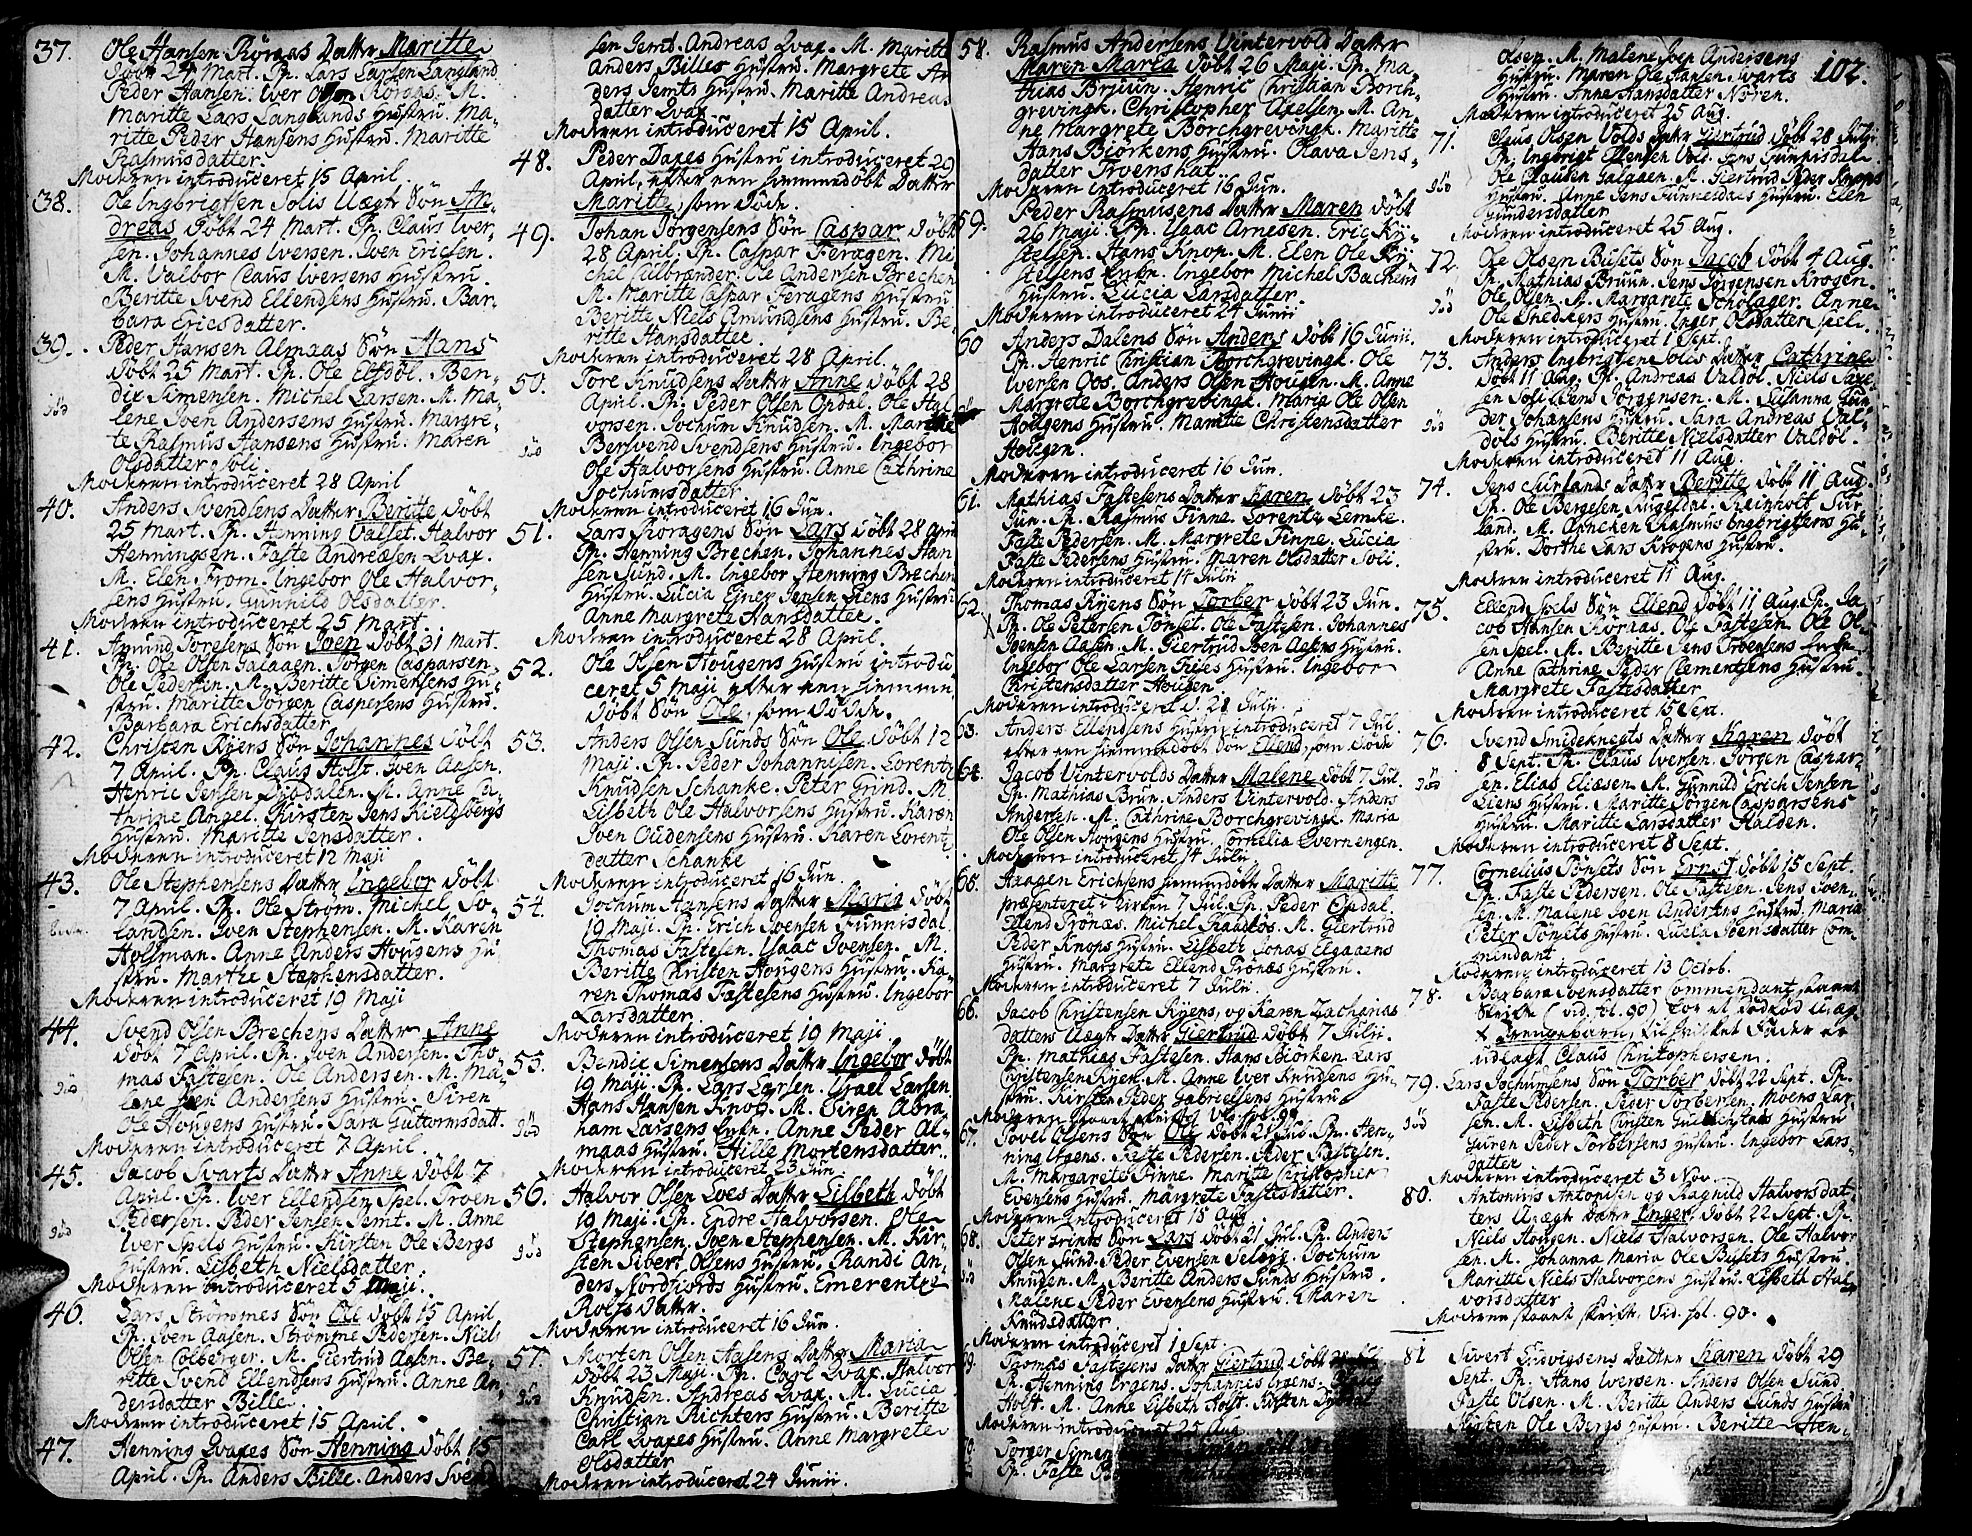 37. Ole Hansen Röraas Datter Maritte
döbt 24 Mart. Ph. Lars Larsen Langland
Peder Hansen. Iver Olsen Röraas. M.
Maritte Lars Langlands Hustru. Ma-
ritte Peder Hansens Hustru. Maritte
Rasmusdatter.
Moderen introduceret 15 April.
38. Ole Ingbrigtsen Solis Uægte Sön An-
dreas döbt 24 Mart. Ph. Claus Iver-
sen. Johannes Iversen. Iven Ericsen.
M. Valbor Claus Iversens Hustru.
Beritte Svend Ellendsens Hustru. Bar-
bara Ericsdatter.
39. Peder Hansen Almaas Sön Hans
döbt 25 Mart. Ph. Ole Elfdöl. Ben-
dix Simensen. Michel Larsen. M. Ma-
lene Iven Andersens Hustru. Margre-
te Rasmus Hansens Hustru. Maren
Olsdatter Soli.
Moderen introduceret 28 April
40. Anders Svendsens Datter Beritte döbt
25 Mart. Ph. Henning Valset. Halvor
Henningsen. Faste Andreæsen Qvax.
M. Elen From. Ingebor Ole Halvor-
sens Hustru. Gunnild Olsdatter.
Moderen introduceret 25 Mart.
41. Amund Toresens Sön Joen döbt 31 Mart.
Ph. Ole Olsen Galaaen. Jörgen Casparsen.
Ole Pedersen. M. Beritte Simensens Hu-
stru. Maritte Jörgen Caspersens Hustru.
Barbara Erichsdatter
42. Christen Ryens Sön Johannes döbt
7 April. Ph. Claus Holst. Iven Aasen.
Henric Jensen Dugdalen. M. Anne Ca-
thrine Angel. Kirsten Jens Kieldsbergs
Hustru. Maritte Jensdatter.
Moderen introduceret 12 Maji
43. Ole Stephensens Datter Ingebor döbt
7 April. Ph. Ole Ström. Michel So-
landsen. Iven Stephensen. M. Karen
Holsman. Anne Anders Hougens Hu-
stru. Marthe Stephensdatter.
Moderen introduceret 19 Maji
44. Svend Olsen Brechens Datter Anne
döbt 7 April. Ph. Iven Andersen. Tho-
mas Fastesen. Ole Andersen. M. Ma-
lene Iven Andersens Hustru. Siren
Ole Hougens Hustru. Sara Guttormsdatt.
Moderen introduceret 7 April.
45. Jacob Svarts Datter Anne döbt 7
April. Ph. Iver Ellendsen Spel. Troen
Pedersen. Peder Jensen Jemt. M. Anne
Iver Spels Hustru. Kirsten Ole Bergs
Hustru. Lisbeth Nielsdatter.
Moderen introduceret 5 Maji.
46. Lars Strömmes Sön Ole döbt 15 April
Ph. Iven Aasen. Strömme Pedersen. Niels
Olsen Colberger. M. Giertrud Aasen. Be-
ritte Svend Ellendsens Hustru. Anne An-
dersdatter Bille.
Moderen introduceret 15 April.
47. Henning Qvaxes Sön Henning döbt 15
April. Ph. Anders Bille. Anders Svend
sen Jemt. Andreas Qvax. M. Maritte
Anders Billes Hustru. Margrete An-
ders Jemts Hustru. Maritte Andreas
datter Qvax.
Moderen introduceret 15 April.
48. Peder Daxes Hustru introduceret 29
April, efter een hiemmedöbt Datter
Maritte, som döde.
49. Johan Jörgensens Sön Caspar döbt
28 April. Ph. Caspar Feragen. Mi-
chel Ole Andersen Brechen
M. Maritte Caspar Feragens Hustru
Beritte Niels Amundsens Hustru. Be-
ritte Hansdatter.
Moderen introduceret 28 April.
50. Tore Knudsens Datter Anne döbt 28
April. Ph. Peder Olsen Opdal. Ole Hal-
vorsen. Jochum Knudsen. M. Marthe
Bersvend Svendsens Hustru. Ingebor
Ole Halvorsens Hustru. Anne Cathrine
Jochumsdatter
Moderen introduceret 16 Jun.
51. Lars Röragens Sön Lars döbt 28 April
Ph. Henning Brechen. Johannes Han-
sen Sund. M. Ingebor Henning Brechen
Hustru. Lucia Ejner Jensen Liens Hustru
Anne Margrete Hansdatter.
Moderen introduceret 28 April.
52. Ole Olsen Hougens Hustru introdu-
ceret 5 Maji efter een hiemme
döbt Sön Ole, som döde.
53. Anders Olsen Sunds Sön Ole döbt 12
Maji. Ph. Peder Johannisen. Lorentz
Knudsen Schanke. Peter Grind. M.
Lisbeth Ole Halvorsens Hustru. Karen
Iven Oudensens Hustru. Karen Lorentz
datter Schanke
Moderen introduceret 16 Jun.
54. Jochum Hansens Datter Maria döbt
19 Maji. Ph. Erich Ivensen Funnisdal
Thomas Fastesen. Isaac Ivensen. M.
Beritte Christen Hougens Hustru. Ka-
ren Thomas Fastesens Hustru. Ingebor
Larsdatter
Moderen introduceret 19 Maji
55. Bendix Simensens Datter Ingebor döbt
19 Maji. Ph. Lars Larsen. Israel Larsen
Hans Hansen Knop. M. Siren Abra-
ham Larsens Enke. Anne Peder Al-
maas Hustru. Hille Mortensdatter.
Moderen introduceret 23 Jun.
56. Halvor Olsen Loes Datter Lisbeth döbt
19 Maji. Ph. Endre Halvorsen. Ole
Stephensen. Iven Stephensen. M. Kir-
sten Sivert Olsens Hustru. Randi An-
ders Nordfjords Hustru. Emerentze
Rolfs datter.
Moderen introduceret 16 Jun.
57. Morten Olsen Aasens Datter Maria
döbt 23 Maji. Ph. Carl Qvax. Halvor
Knudsen. Andreas Qvax. M. Lucia
Christian Richters Hustru. Beritte
Carl Qvaxes Hustru. Anne Margrete
Olsdatter
Moderen introduceret 24 Junii.
102.
58. Rasmus Andersens Vintervold Datter
Maren Maria döbt 26 Maji. Ph. Ma-
thias Bruun. Henric Christian Borch-
grevingk. Christopher Axelsen. M. An-
ne Margrete Borchgrevingk. Maritte
Hans Biörkens Hustru. Olava Jens-
datter Troenshat.
Moderen introduceret 16 Jun.
59. Peder Rasmusens Datter Maren döbt
26 Maji. Ph. Isaac Arnesen. Eric Ky-
stelsen. Hans Knop. M. Elen Ole Ky-
stelsens Enke. Ingebor Michel Backens
Hustru. Lucia Larsdatter.
Moderen introduceret 24 Junii
60 Anders Dalens Sön Anders döbt 16 Junii.
Ph. Henric Christian Borchgrevingk. Ole
Iversen Oos. Anders Olsen Hougen. M. Anne
Margrete Borchgrevingk. Maria Ole Olsen
Hougens Hustru. Maritte Christensdatter
Hougen.
Moderen introduceret 16 Jun.
61. Mathias Fastesens Datter Karen döbt 23
Jun. Ph. Rasmus Finne. Lorentz Lemke.
Faste Pedersen. M. Margrete Finne. Lucia
Faste Pedersens Hustru. Maren Olsdatter Soli.
Moderen introduceret 14 Julii
62. Thomas Ryens Sön Torber döbt 23 Jun.
Ph. Ole Petersen Tönset. Ole Fastesen. Johannes
Ivensen Aasen. M. Giertrud Iven Aasens Hustru.
Ingebor Ole Larsen Hustru. Ingebor
Christensdatter Hougen
Moderen introduceret d. 28 Julii.
63. Anders Ellendsens Hustru introduceret 7 Jul.
efter een hiemmedöbt Sön Ellend, som döde
64. Jacob Vintervolds Datter Malene döbt 7 Jul.
Ph. Mathias Brun. Anders Vintervold. Anders
Andersen. M. Cathrine Borchgrevingk. Maria
Ole Olsen Hougens Hustru. Cornelia Evernengen.
Moderen introduceret 14 Julii.
65. Aaagen Erichsens hiemmedöbt Datter Maritte
præsenteret i Kirken 7 Jul. Ph. Peder Opdal.
Ellend Trönæs. Michel Kaadtös. M. Giertrud
Peder Knops Hustru. Lisbeth Jonas Elgaaens
Hustru. Margrete Ellend Trönæs Hustru.
Moderen introduceret 7 Julii.
66. Jacob Christensen Ryens, og Karen Zacharias
datters Uægte Datter Giertrud döbt 7 Julii.
Ph. Mathias Fastesen. Hans Biörken. Lars
Christensen Ryen. M. Anne Iver Knudsens Hu-
stru. Kirsten Peder Gabrielsens Hustru
Moderen staaet skrift vid. fol. 90
67. Jovel Olsens Sön Ole döbt 21 Jul. Ph. Hen-
ning Irgens. Faste Pedersen. Peder Fastesen.
M. Margarete Finne. Maritte Christopher
Evensens Hustru. Margrete Fastesdatter.
Moderen introduceret 15 Aug
68. Peter Sön Lars döbt 21 Jul. Ph. Anders
Olsen Sund. Peder Evensen Selboe. Jochum
Knudsen. M. Beritte Anders Sunds Hustru.
Malene Peder Evensens Hustru. Maren
Knudsdatter
Moderen introduceret 1 Sept.
69. Thomas Fastesens Datter Giertrud döbt 28
Ph. Henning Irgens. Johannes Irgens.
Holst. M. Anne Lisbeth Holst. Kirsten
Moderen introduceret 25 Aug
70. Törger Simen
Ph. Faste
Olsen. M. Malene Iven Andersens
Hustru. Maren Ole Hansen Svarts
Hustru. Anne Hansdatter Noren.
Moderen introduceret 25 Aug.
71. Claus Olsen Volds Datter Giertrud döbt 28 Julii
Ph. Ingbrigt Ellensen Vold. Jens Funnisdal
Ole Clausen Galgaen. M. Giertrud Peder Knops
Hustru. Anne Jens Funnesdals Hustru. Elen
Gundersdatter
Moderen introduceret 25 Aug.
72. Ole Olsen Busets Sön Jacob döbt 4 Aug.
Ph. Mathias Bruun. Jens Jörgensen Krogen.
Ole Olsen. M. Margarete Scholager. Anne
Ole Snedkers Hustru. Inger Olsdatter Spel.
Moderen introduceret 1 Sept.
73. Anders Ingbrigtsens Solis Datter Cathrine
döbt 11 Aug. Ph. Andreas Valdöl. Niels
Jörgensen. M. Susanna
der Johansens Hustru. Sara Andreas Val-
döls Hustru. Beritte Nielsdatter Valdöl.
Moderen introduceret 11 Aug.
74. Jens Surlands Datter Beritte döbt 11 Aug.
Ph. Ole Bergesen Rugesdal. Reinholt Sur-
land. M. Anneken Rasmus Engbrigtsens Hu-
stru. Dorthe Lars Krogens Hustru.
Moderen introduceret 11 Aug.
75. Ellend Spels Sön Ellend döbt 11 Aug. Ph. Ja-
cob Hansen Röraas. Ole Fastesen. Ole Ol-
sen Spel. M. Beritte Jens Troensens Enke.
Anne Cathrine Peder Clementsens Hustru.
Margrete Fastesdatter
Moderen introduceret 15 Sept.
76. Svend Smideknegts Datter Karen döbt
8 Sept. Ph. Claus Iversen. Jörgen Caspar-
sen. Elias Eliæsen. M. Gunnild Erich Jensen
Liens Hustru. Maritte Jörgen Casparsens
Hustru. Maritte Larsdatter Halden.
Moderen introduceret 8 Sept.
77. Cornelius Tönsets Sön Ernst döbt 15 Sept.
Ph. Faste Pedersen. Ole Fastesen. Jens Iven-
sen. M. Malene Iven Andersens Hustru. Maria
Peter Tönsets Hustru. Lucia Ivensdatter Com-
mendant
Moderen introduceret 13 Octob.
78. Barbara Ivensdatter Commendant staaet
Skrift (vid. fol. 90) for et dödföd Uæg-
te Drengebarn, til hvilket Fader er
udlagt Claus Christophersen.
79. Lars Jochumsens Sön Torber döbt 22 Sept. Ph.
Faste Pedersen. Peder Torbersen. Moens Lar-
sen. M. Lisbeth Christen Hustru
Siren Peder Torbersens Hustru. Ingebor Lars-
datter
Moderen introduceret 3 Nov.
80. Antonius Antonisen og Ragnild Halvorsdat-
ters Uægte Datter Inger döbt 22 Sept. Ph.
Niels Hougen. Niels Halvorsen. Ole Halvor
sen. M. Johanna Maria Ole Busets Hustru
Marette Niels Halvorsens Hustru. Lisbeth Hal-
vorsdatter
Moderen staaet skrift. Vid. fol. 90.
81 Sivert Ludvigsens Datter Karen döbt 29
Sept. Ph. Hans Iversen. Anders Olsen Sund
Faste Olsen. M. Beritte Anders Sunds Hustru
Kirsten Ole Bergs Hustru. Beritte Hen-